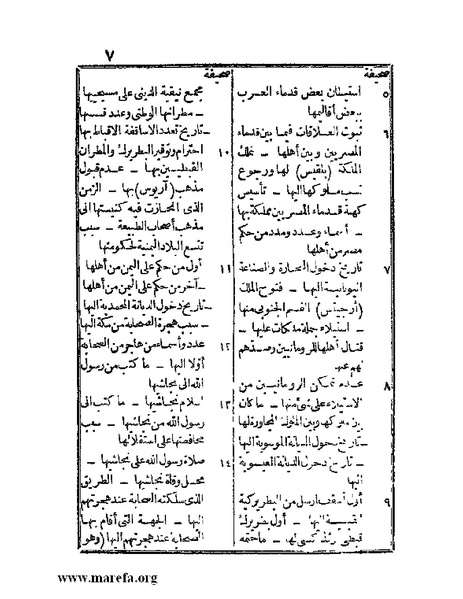 ٧
صحيفة
٥ استيطان بعض قدماء العرب
ببعض أقاليمها
٦ ثبوت العلاقات فيما بين قدماء
المصريين وبين أهلها ـ تملك
الملكة (بلقيس) لها ورجوع
نسب ملوكها اليها ـ تأسيس
كهنة قدماء المصريين مملكة بها
ـ أسماء وعدد ومدد من حكم
مصر من أهلها
٧ تاريخ دخول التجارة والصناعة
اليونانية اليها ـ فتوح الملك
(أرجيتس) القسم الجنوبى منها
ـ استيلاء جملة ملكات عليها ـ
قتال أهلها للرومانيين وصدهم
لهم عنها
٨ عدم تمكن الرومانيين من
الاستيلاء على شئ منها ـ ما كان
بين ملوكها وبين الملوك المجاورة لها
ـ تاريخ دخول الديانة الموسوية اليها
ـ تاريخ دخول الديانة العيسوية
اليها
٩ أول أسقف أرسل من البطريركية
القبطية اليها ـ أول بطريرك
قبطى ـ ما حتمه
صحيفة
مجمع نيقية الدينى على مسيحييها
ـ مطرانها الوطنى وعدد قسسها
ـ تاريخ تعدد الاساقفة الاقباط بها
١٠ احترام وتوقير البطريرك والمطران
القبطيين بها ـ عدم قبول
مذهب (أريوس) بها ـ الزمن
الذى انحازت فيه كنيستها الى
مذهب أصحاب الطبيعة ـ سبب
تتبع البلاد اليمنية لحكومتها
١١ أول من حكم على اليمن من أهلها
ـ آخر من حكم على اليمن من أهلها
ـ تاريخ دخول الديانة المحمدية اليها
ـ سبب هجرة الصحابة من مكة اليها
١٢ عدد وأسماء من هاجر من الصحابة
أولا اليها ـ ما كتب من رسول
الله الى نجاشيها
١٣ اسلام نجاشيها ـ ما كتب الى
رسول الله من نجاشيها ـ سبب
محافظتها على استقلالها
١٤ صلاة رسول الله على نجاشيها ـ
محل وفاة نجاشيها ـ الطريق
الذى سلكته الصحابة عند هجرتهم
اليها ـ الجهة التى أقام بها
الصحابة عند هجرتهم اليها (وهو
www.marefa.org